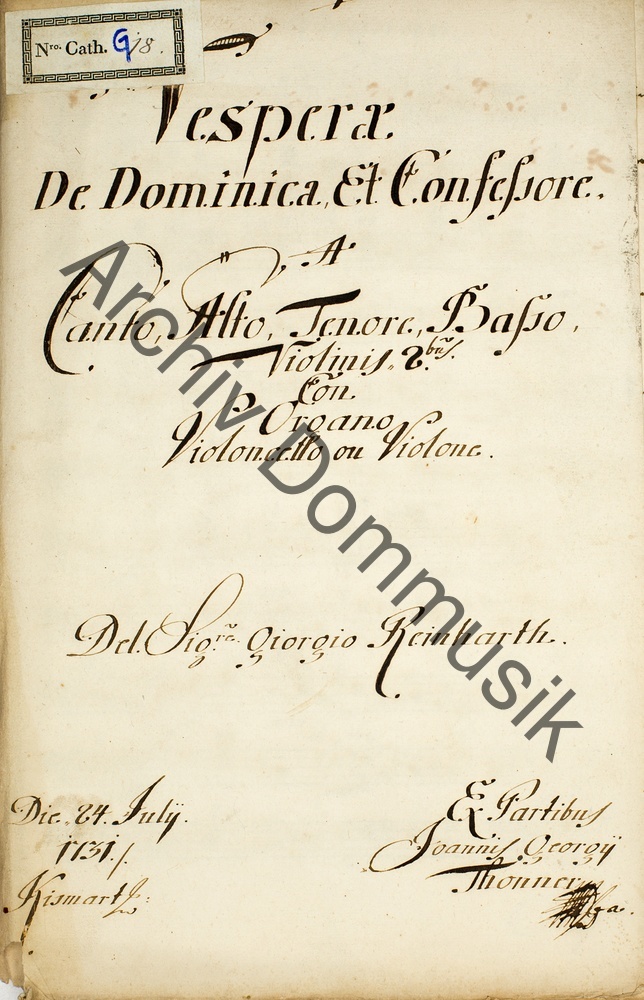 Nro. Cath. G 18.
Vesperæ
De Dominica, Et Confessore.
A
Canto, Alto, Tenore, Basso,
Violinis, 2bus.
Con
Organo
Violoncello ou Violone.
Del Sigre. Giorgio Reinharth.
Die 24 July.
1731./.
Kismart
Ex Partibus
Joannis Georgij
Thonner
Archiv Dommusik